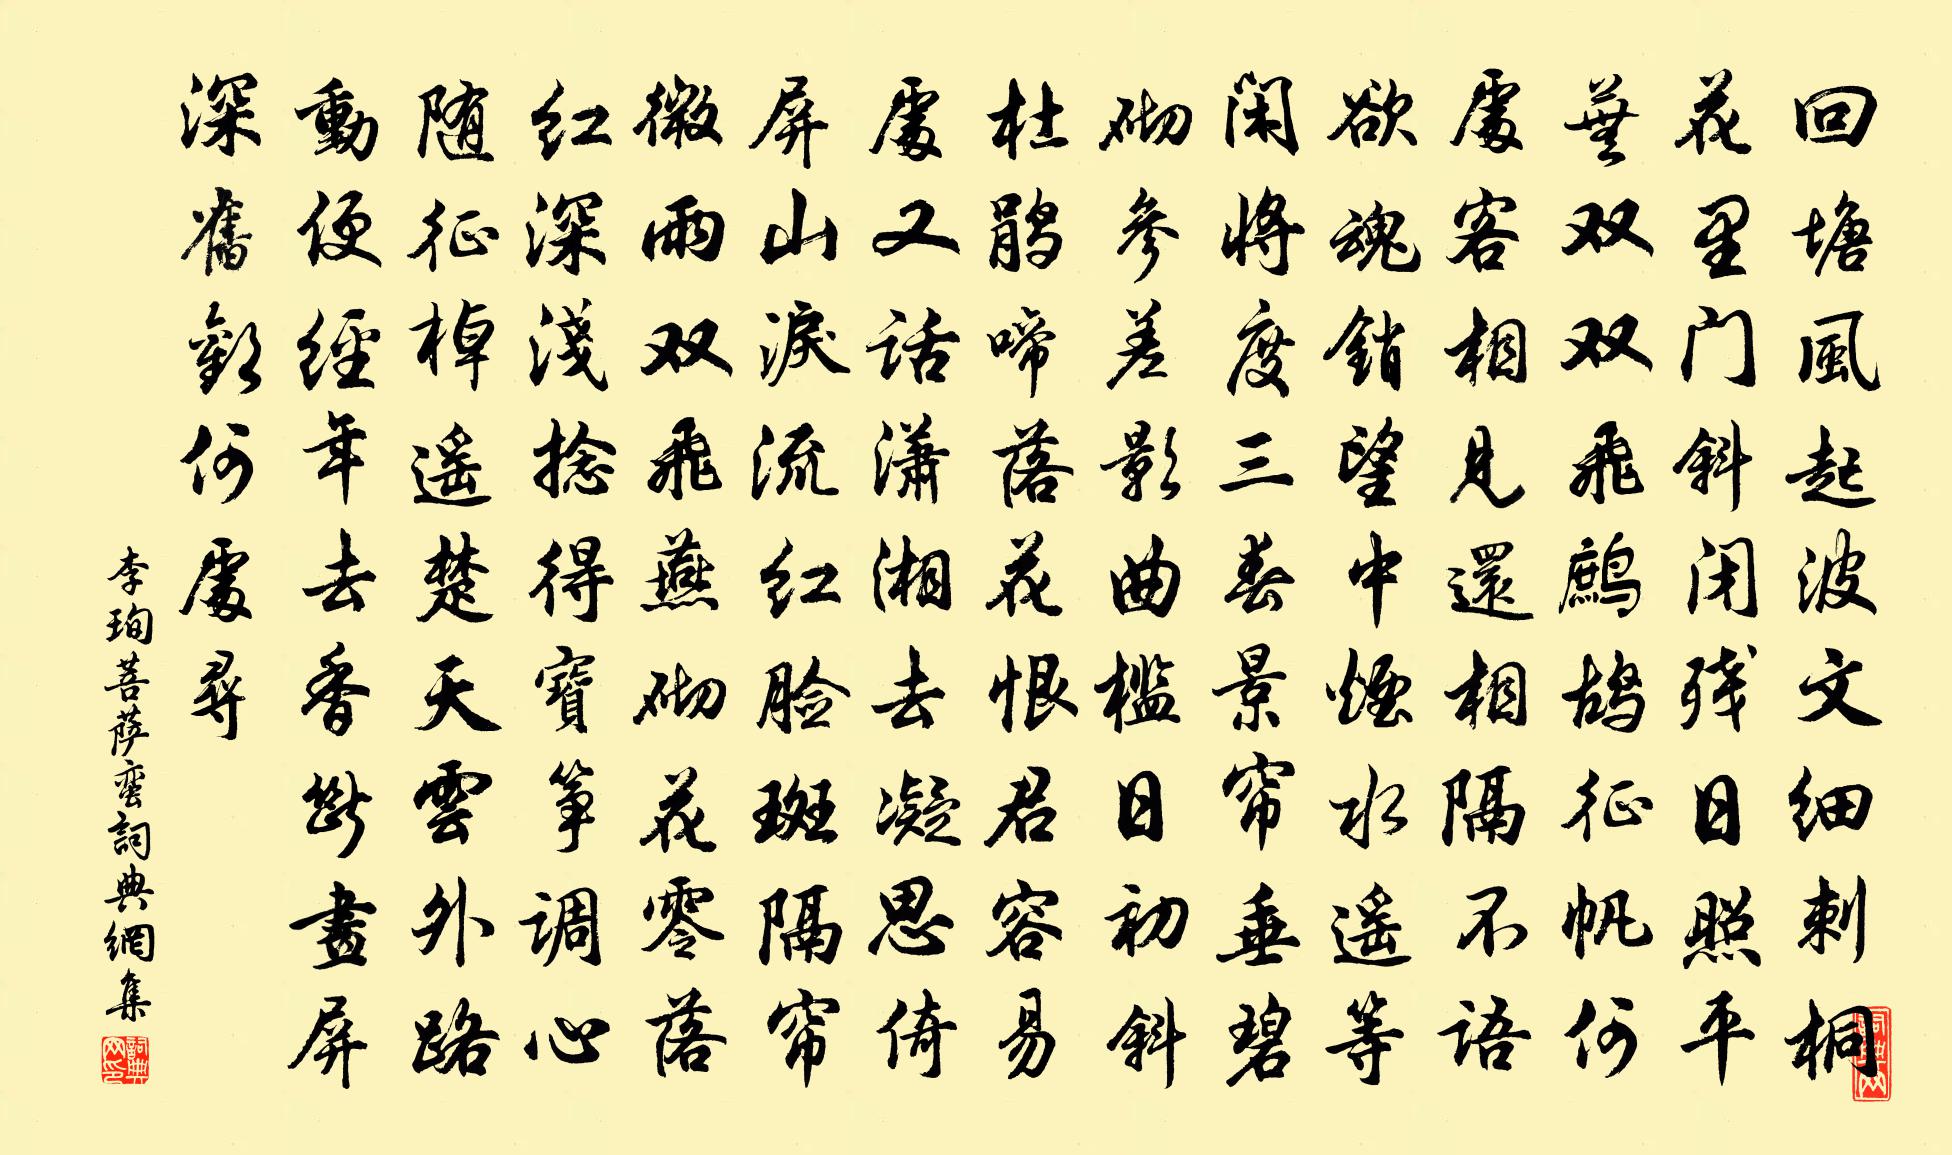 回塘風起波文細刺桐
花里门斜闭残日照平
蕪双双飛鷓鸪征帆何
處客相見還相隔不語
欲魂銷望中煙水遥等
闲將度三春景帘垂碧
砌参差影曲槛日初斜
杜鹃啼落花恨君容易
處又话潇湘去凝思倚
屏山淚流红脸斑隔帘
微雨双飛燕砌花零落
红深淺捻得寶筝调心
随征棹遥楚天雲外路
動便經年去香斷畫屏
深舊歡何處尋
李珣菩萨蛮詞典網集
詞典网
詞典网印